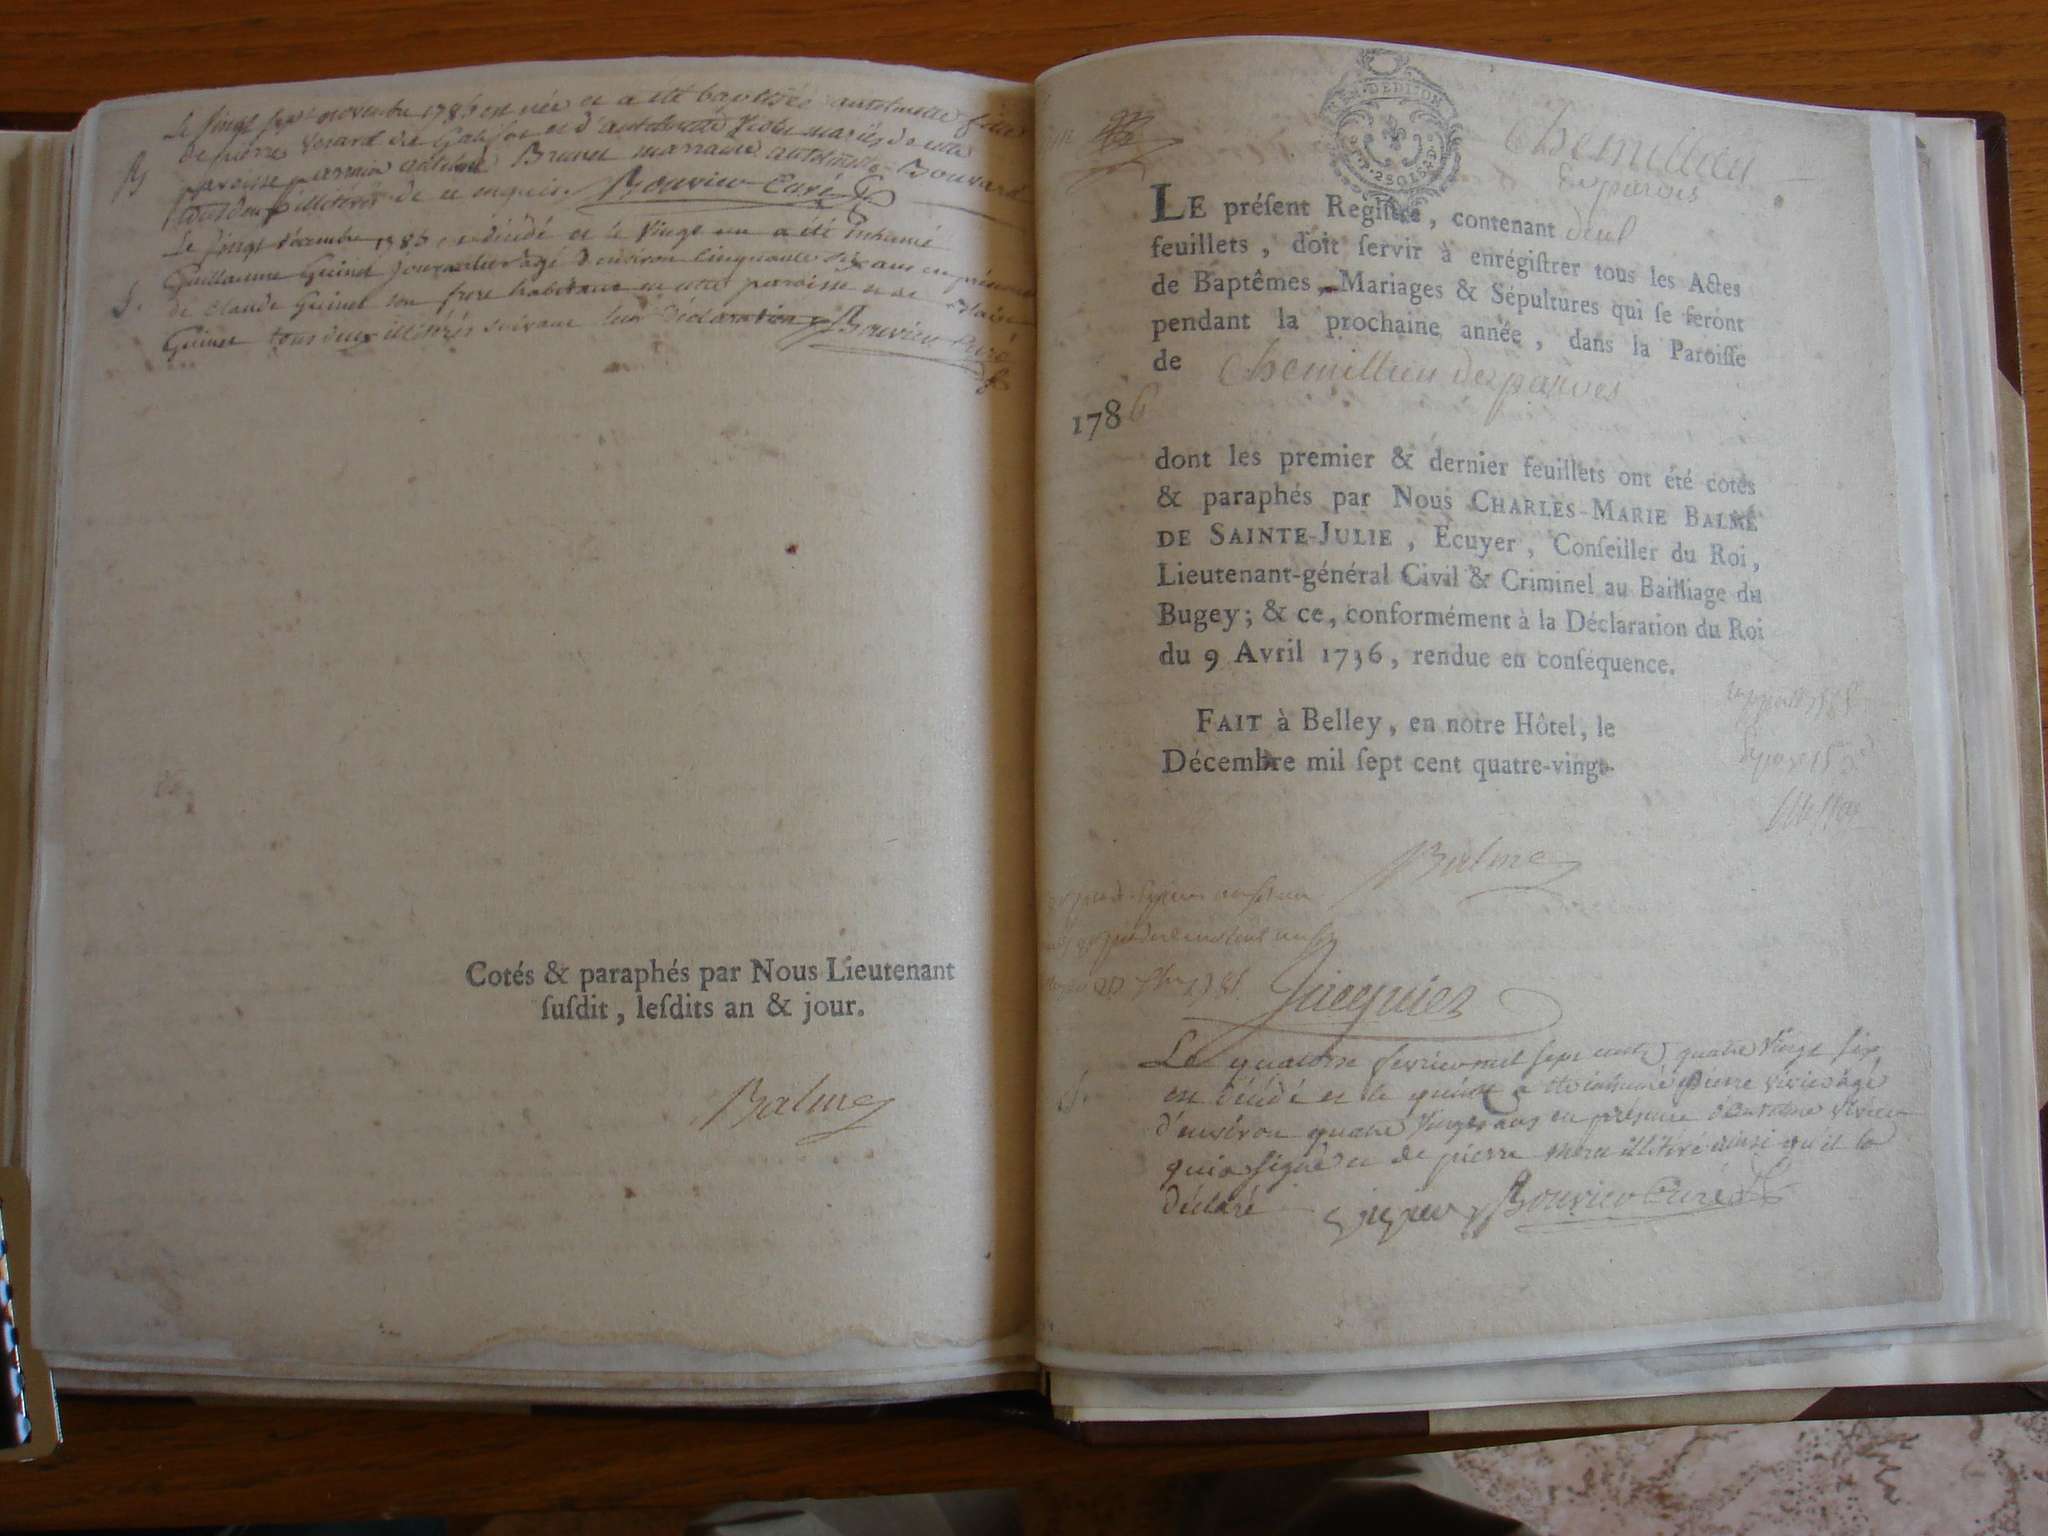 Le vingt sept novembre 1785 est née et a été baptisée antelmette fille
de pierre de et d'antelmette mariés de cette
B paroisse parrain antelme Brunet marraine antelmette Bouvard
tous deux illitérés de ce enquis. Bouvier Curé
Le vingt décembre 1785 est décédé et le vingt un a été inhumé
Guillaume Guinet journalier agé d'environ cinquante six ans en présence
S. de Claude Guinet son frere habitant en cette paroisse et de
Guinet tous deux illitérés suivant leur déclaration Bouvier Curé
Cotés & paraphés par Nous Lieutenant
ſuſdit, leſdits an & jour.
Balme
Chemillieu
de parves
LE préſent Regiſtre, contenant deux
feuillets, doit ſervir à enrégiſtrer tous les Actes
de Baptêmes, Mariages & Sépultures qui ſe feront
pendant la prochaine année, dans la Paroiſſe
de Chemillieu de parves
1786
dont les premier & dernier feuillets ont été cotés
& paraphés par Nous CHARLES-MARIE BALME
DE SAINTE-JULIE, Ecuyer, Conſeiller du Roi,
Lieutenant-général Civil & Criminel au Bailliage du
Bugey; & ce, conformément à la Déclaration du Roi
du 9 Avril 1736, rendue en conſéquence.
FAIT à Belley, en notre Hôtel, le
Décembre mil ſept cent quatre-vingt-
Balme
Jucquier
Le quatorze fevrier mil sept cents quatre vingt six
S. est décédé et le quinze a été inhumé pierre vivier agé
d'environ quatre vingts ans en présence d'antelme vivier
qui a signé et de pierre illitéré ainsi qu'il l'a
déclaré Bouvier Curé